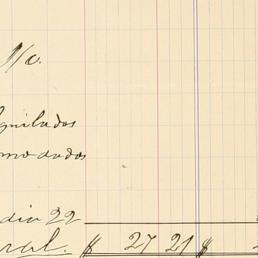 N/o.
quilados
modados
dia 22
ral. $ 27 21 $